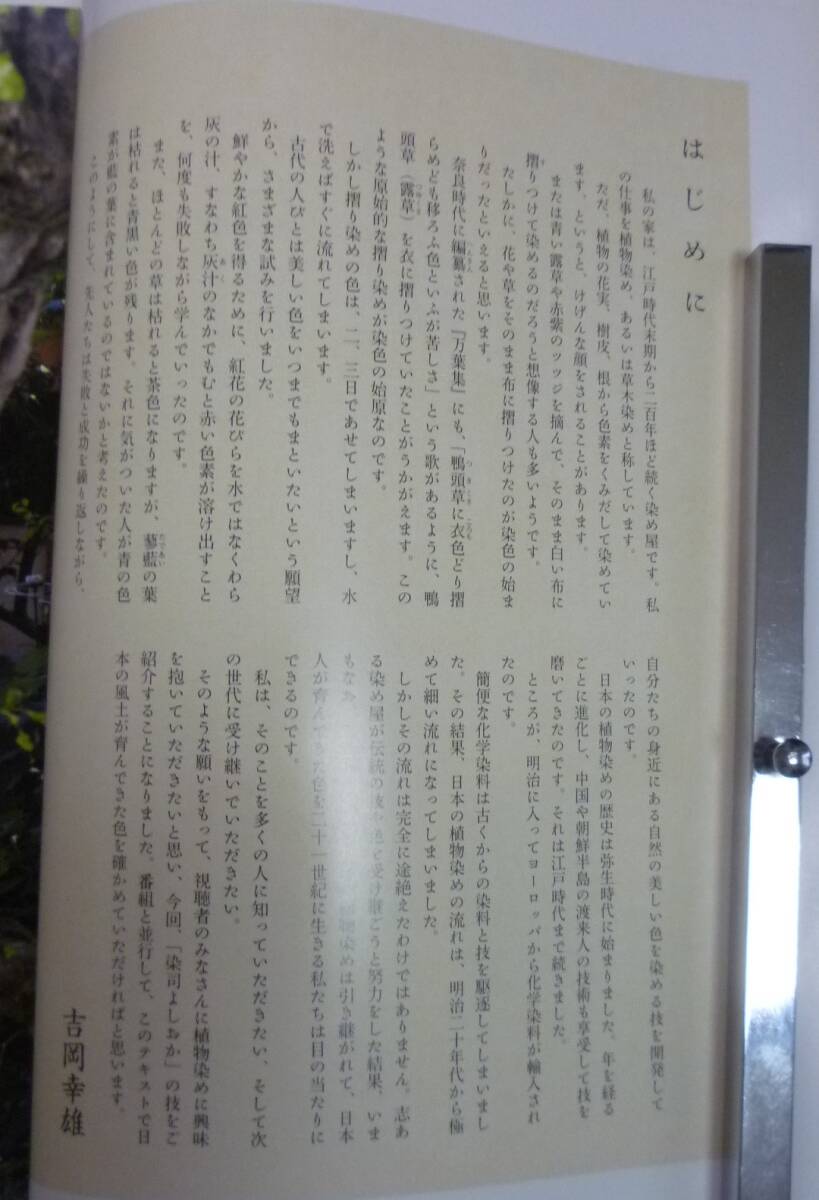 はじめに
私の家は、江戸時代末期から二百年ほど続く染め屋です。私
の仕事を植物染め、あるいは草木染めと称しています。
ただ、植物の花実、樹皮、根から色素をくみだして染めてい
ます、というと、けげんな顔をされることがあります。
または青い露草や赤紫のツツジを摘んで、そのまま白い布に
摺りつけて染めるのだろうと想像する人も多いようです。
たしかに、花や草をそのまま布に摺りつけたのが染色の始ま
りだったといえると思います。
奈良時代に編纂された『万葉集』にも、「鴨頭草に衣色どり摺
らめども移ろふ色といふが苦しさ」という歌があるように、鴨
頭草（露草）を衣に摺りつけていたことがうかがえます。この
ような原始的な摺り染めが染色の始原なのです。
しかし摺り染めの色は、二、三日であせてしまいますし、水
で洗えばすぐに流れてしまいます。
古代の人びとは美しい色をいつまでもまといたいという願望
から、さまざまな試みを行いました。
鮮やかな紅色を得るために、紅花の花びらを水ではなくわら
灰の汁、すなわち灰汁のなかでもむと赤い色素が溶け出すこと
を、何度も失敗しながら学んでいったのです。
また、ほとんどの草は枯れると茶色になりますが、蓼藍の葉
は枯れると青黒い色が残ります。それに気がついた人が青の色
素が藍の葉に含まれているのではないかと考えたのです。
このようにして、先人たちは失敗と成功を繰り返しながら、
自分たちの身近にある自然の美しい色を染める技を開発して
いったのです。
日本の植物染めの歴史は弥生時代に始まりました。年を経る
ごとに進化し、中国や朝鮮半島の渡来人の技術も享受して技を
磨いてきたのです。それは江戸時代まで続きました。
ところが、明治に入ってヨーロッパから化学染料が輸入され
たのです。
簡便な化学染料は古くからの染料と技を駆逐してしまいまし
た。その結果、日本の植物染めの流れは、明治二十年代から極
めて細い流れになってしまいました。
しかしその流れは完全に途絶えたわけではありません。志あ
る染め屋が伝統の技や色を受け継ごうと努力をした結果、いま
もなお 植物染めは引き継がれて、日本
人が育んできた色を二十一世紀に生きる私たちは目の当たりに
できるのです。
私は、そのことを多くの人に知っていただきたい、そして次
の世代に受け継いでいただきたい。
そのような願いをもって、視聴者のみなさんに植物染めに興味
を抱いていただきたいと思い、今回、「染司よしおか」の技をご
紹介することになりました。番組と並行して、このテキストで日
本の風土が育んできた色を確かめていただければと思います。
吉岡幸雄